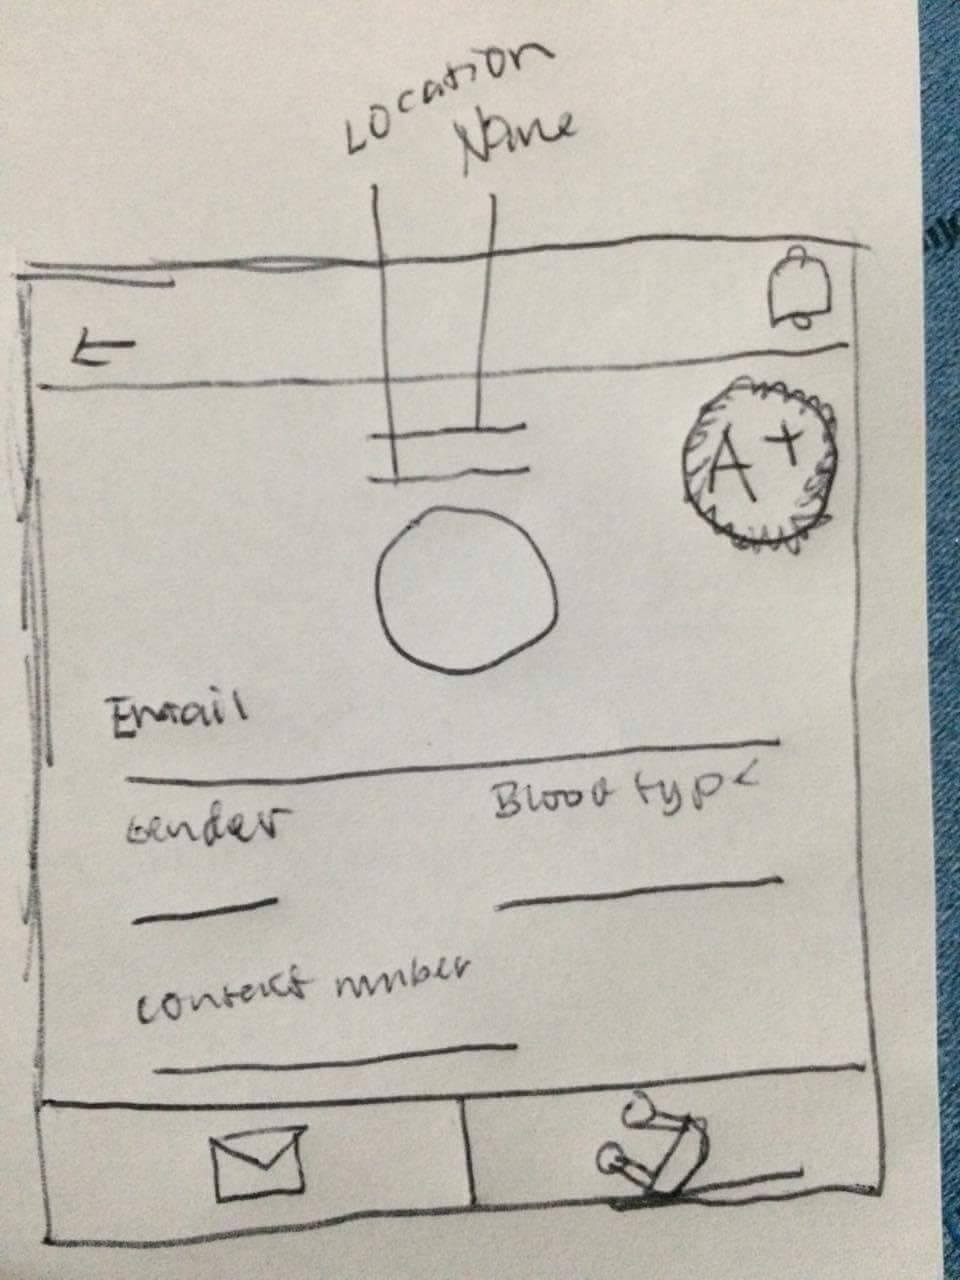 Location
Name
A+
Email
Gender
Blood type
contact number